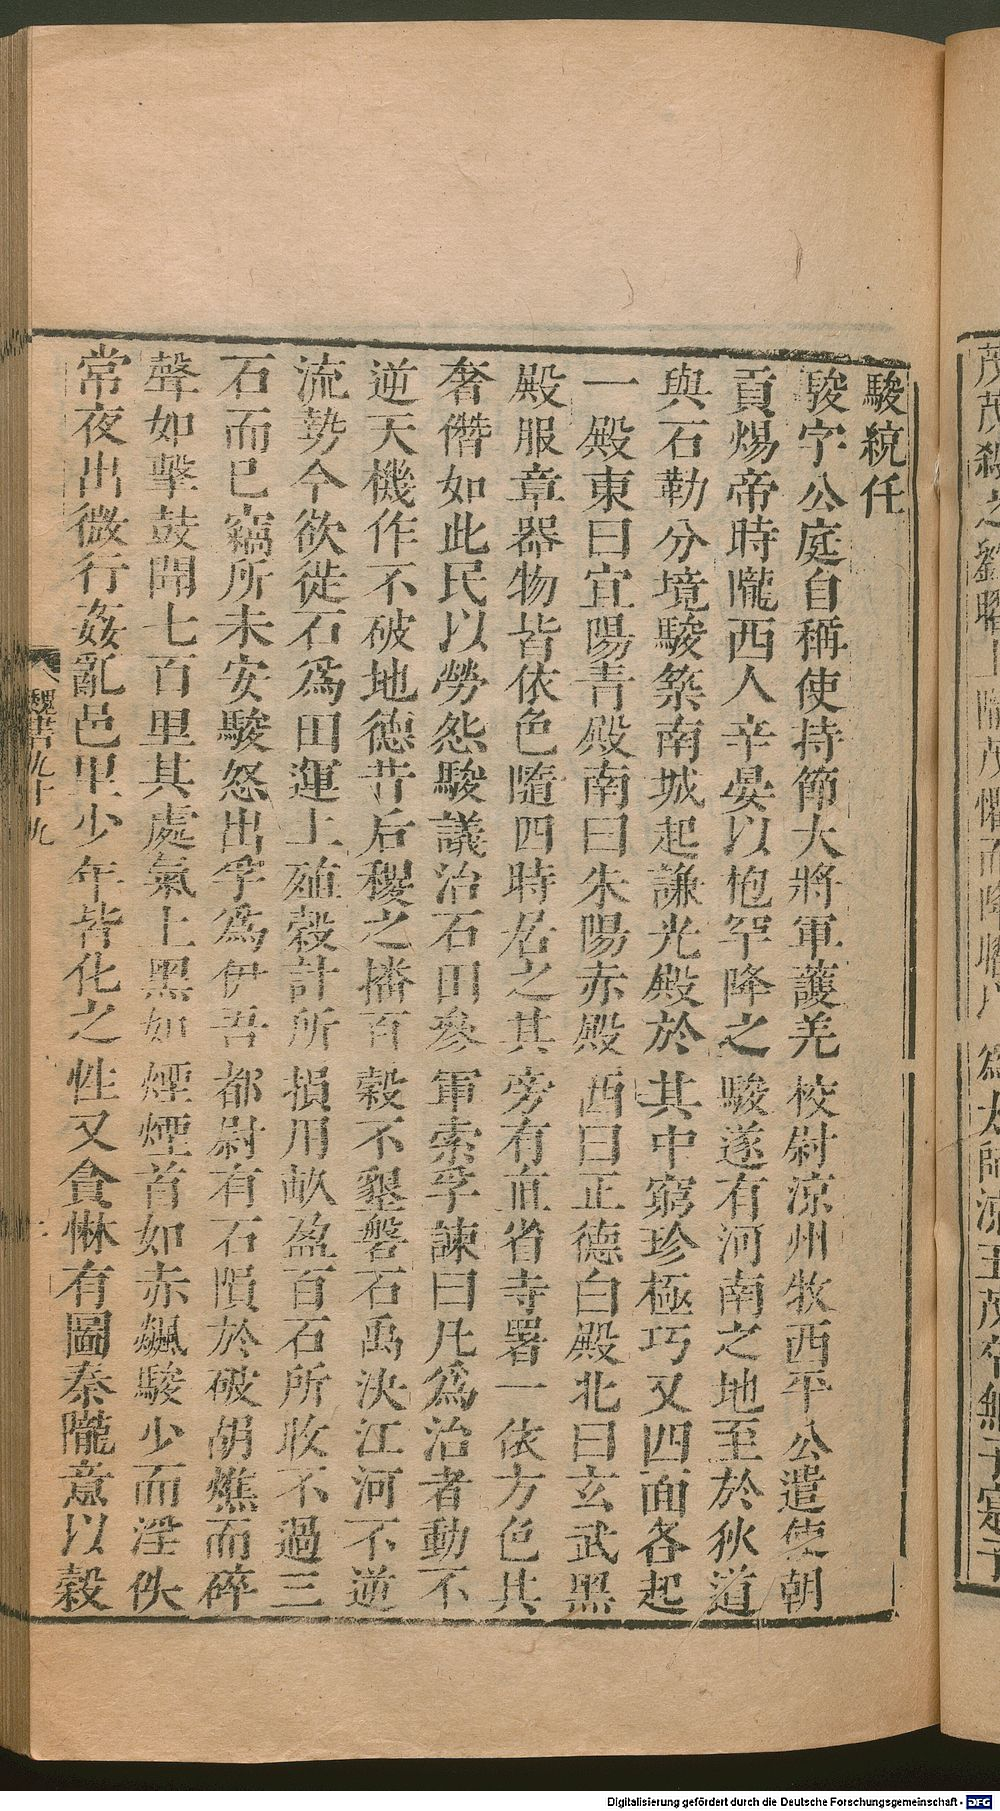 駿統任
駿字公庭自稱使持節大將軍護羌校尉涼州牧西平公遣使朝
貢煬帝時隴西人辛晏以枹罕降之駿遂有河南之地至於狄道
與石勒分境駿築南城起謙光殿於其中窮珍極巧又四面各起
一殿東曰宜陽青殿南曰朱陽赤殿西曰正德白殿北曰玄武黑
殿服章器物皆依色隨四時居之其旁有直省寺署一依方色其
奢僭如此民以勞怨駿議治石田參軍索孚諫曰凡爲治者動不
逆天機作不破地德昔后稷之播百穀不墾磐石禹決江河不逆
流勢今欲徙石爲田運土殖穀計所損用畝盈百石所收不過三
石而已竊所未安駿怒出孚爲伊吾都尉有石隕於破胡燋而碎
聲如擊鼓聞七百里其處氣上黑如煙煙首如赤飆駿少而淫佚
常夜出微行姦亂邑里少年皆化之性又貪惏有圖秦隴意以穀
魏書九十九
Digitalisierung gefördert durch die Deutsche Forschungsgemeinschaft - DFG